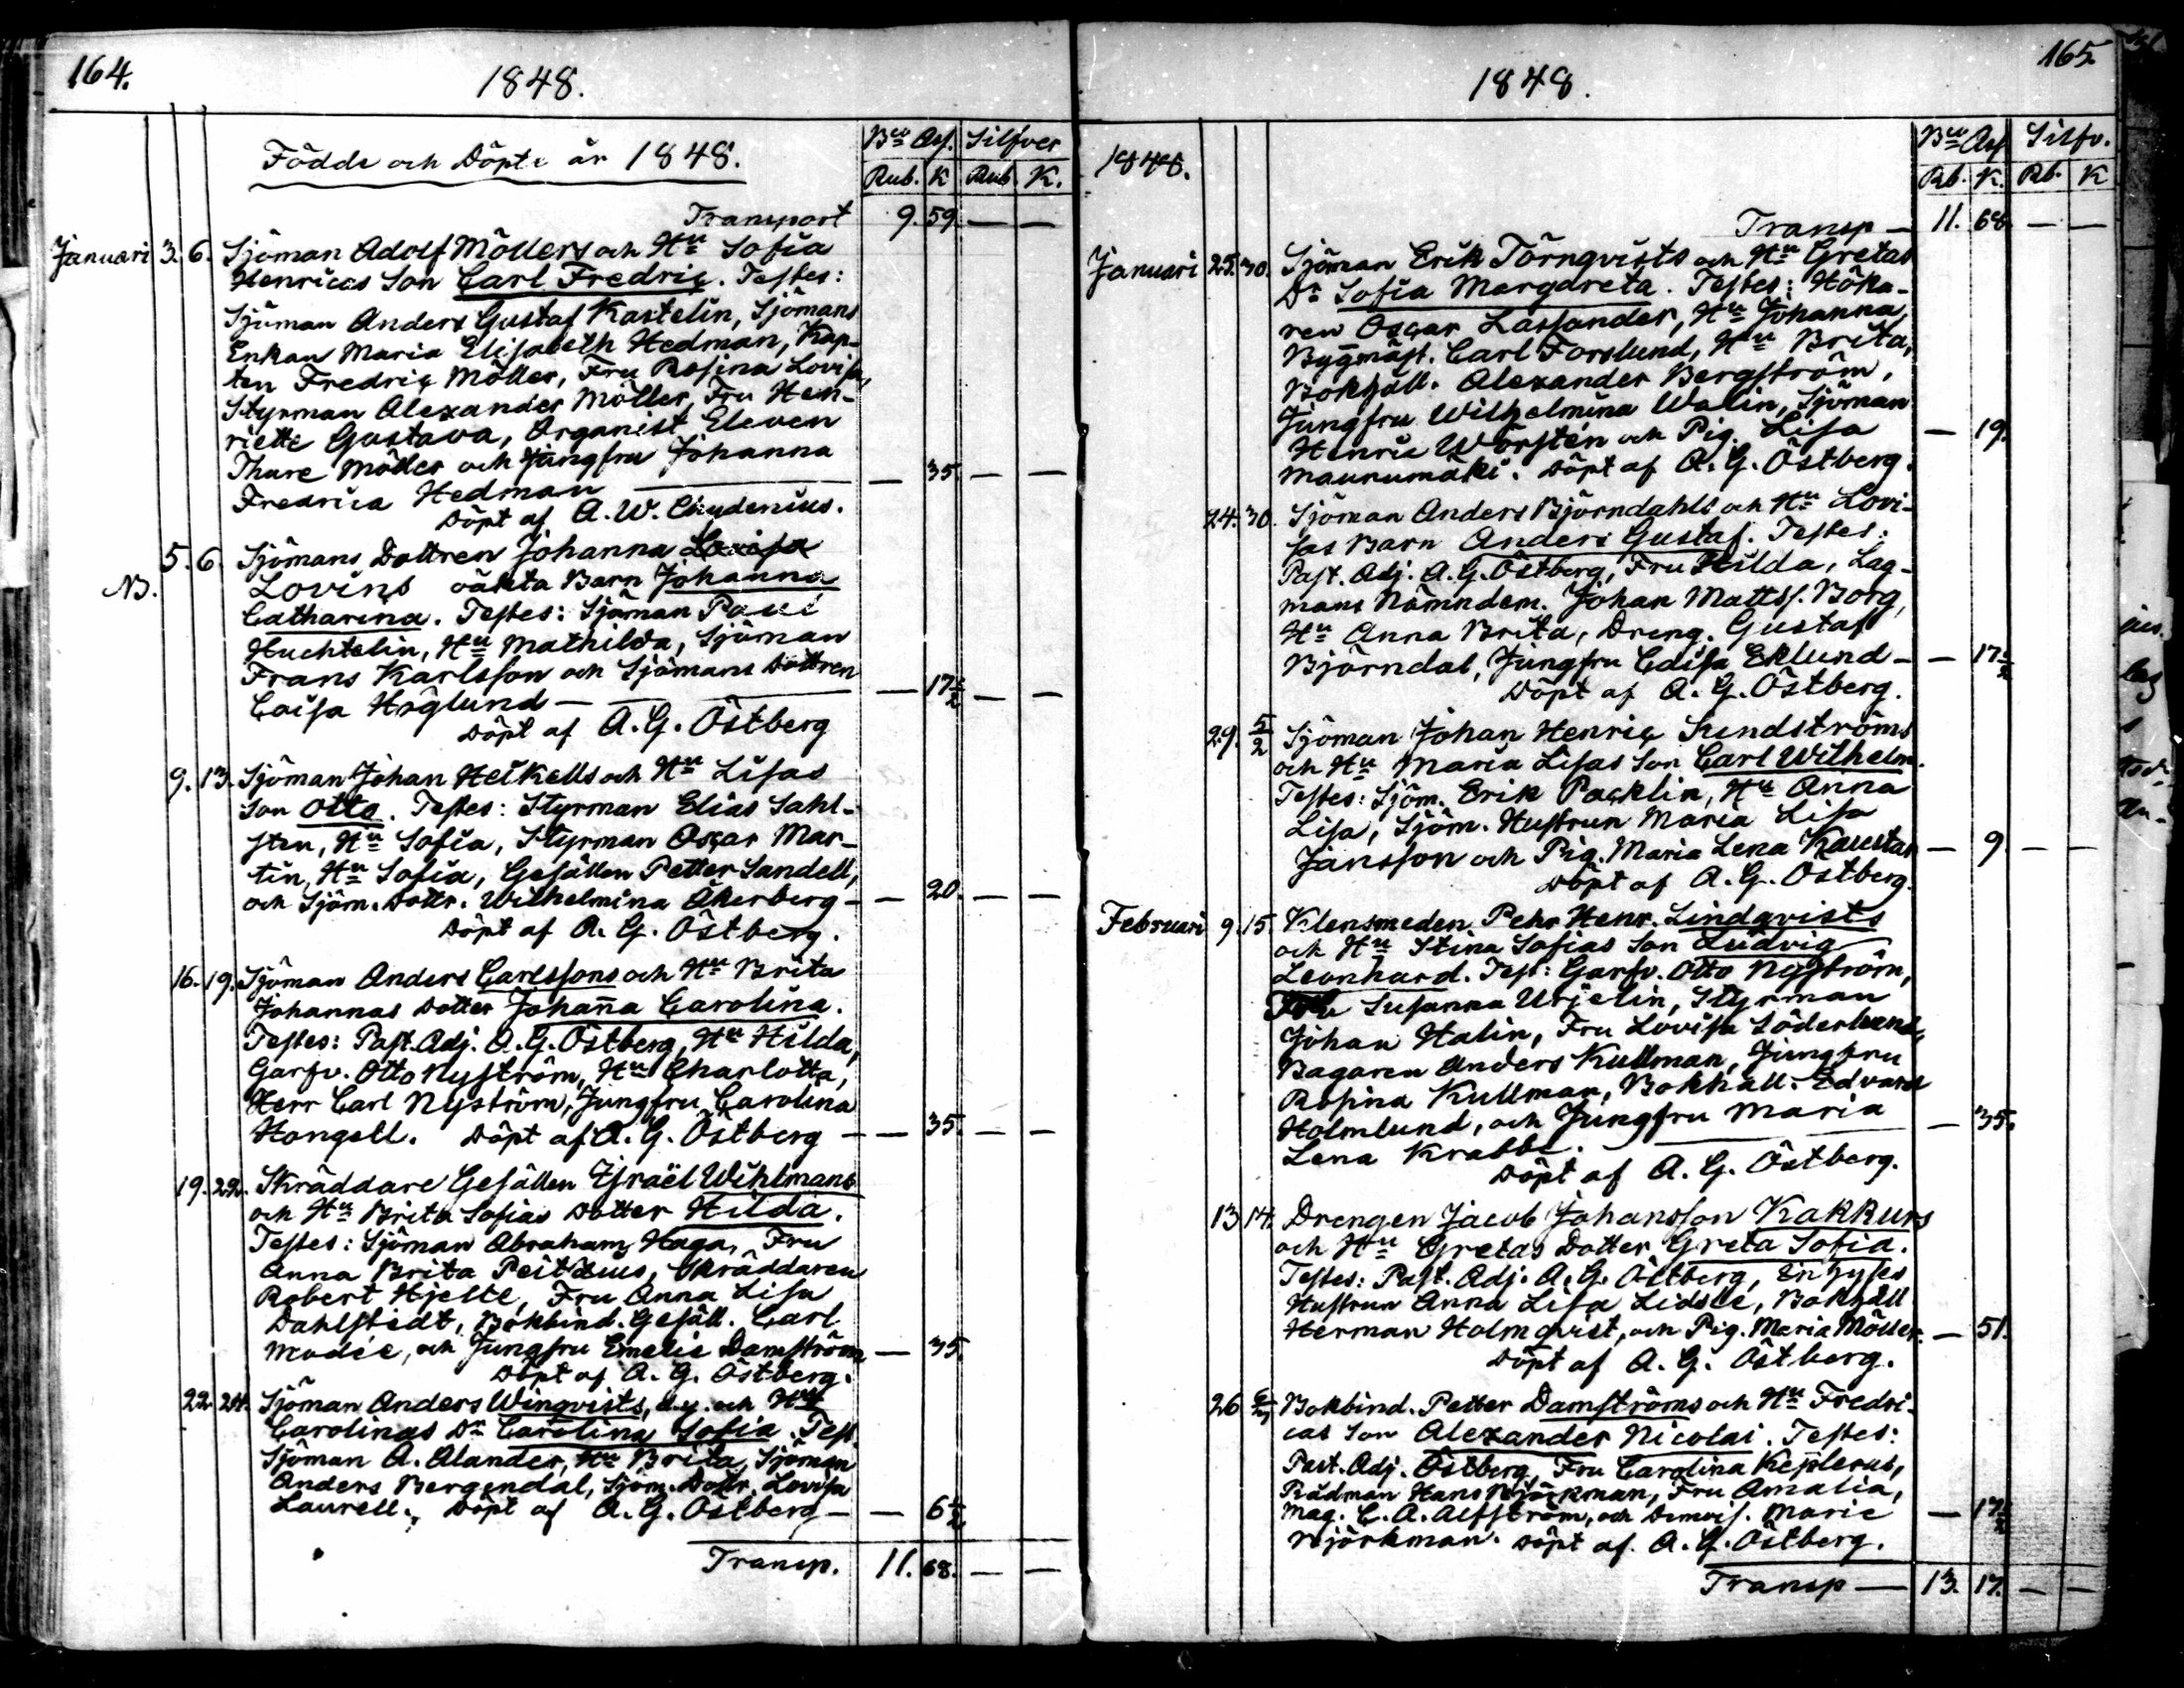 164.
1848.
Födde och Döpte år 1848.
Bco Ass. Silfver
Rub. K Rub. K.
Transport 9. 59. — —
Januari 3. 6. Sjöman Adolf Möllers och Hu Sofia
Henricas Son Carl Fredric. Testes:
Sjöman Anders Gustaf Kastelin, Sjömans
Enkan Maria Elisabeth Hedman, Kap-
ten Fredric Möller, Fru Rosina Lovisa,
Styrman Alexander Möller, Fru Hen-
riette Gustava, Organist Eleven
Thare Möller och Jungfru Johanna
Fredrica Hedman — 35. — —
Döpt af A. W. Chydenius.
5. 6. Sjömans Dottren Johanna Lovisa
NB. Lovins oäkta Barn Johanna
Catharina. Testes: Sjöman Paul
Huchtelin, Hu Mathilda, Sjöman
Frans Karlsson och Sjömans Dottren
Caisa Höglund — — 17 1/2 — —
Döpt af A. G. Östberg
9. 13. Sjöman Johan Heikells och Hu Lisas
Son Otto. Testes: Styrman Elias Sahl-
sten, Hu Sofia, Styrman Oscar Mar-
tin, Hu Sofia, Gesällen Petter Sandell,
och Sjöm. Dottr. Wilhelmina Åkerberg — — 20. — —
Döpt af A. G. Östberg.
16. 19. Sjöman Anders Carlssons och Hu Brita
Johannas Dotter Johanna Carolina.
Testes: Past. Adj. A. G. Östberg, Hu Hilda,
Garfv. Otto Nyström, Hu Charlotta,
Herr Carl Nyström, Jungfru Carolina
Hongell. Döpt af A. G. Östberg — — 35. — —
19. 22. Skräddare Gesällen Israël Wihlmans
och Hu Brita Sofias Dotter Hilda.
Testes: Sjöman Abraham Haga, Fru
Anna Brita Skräddaren
Robert Hjelte, Fru Anna Lisa
Dahlstedt, Bokbind. Gesäll. Carl
Modée, och Jungfru Emelie Damström — 35.
Döpt af A. G. Östberg.
22. 24. Sjöman Anders Winqvists, d.y. och Hu
Carolinas Dr Carolina Sofia. Test.
Sjöman A. Alander, Hu Brita, Sjöman
Anders Bergendal, Sjöm. Dottr. Lovisa
Laurell. Döpt af A. G. Östberg — — 6 1/2
Transp. 11. 68. — —
165.
1848.
1848.
Bco Ass Silfv.
Rb. K. Rb. K
Transp — 11. 68 — —
Januari 25. 30. Sjöman Erik Törnqvists och Hu Gretas
Dr Sofia Margareta. Testes: Höka-
ren Oscar Lassander, Hu Johanna,
Byggmäst. Carl Forslund, Hu Brita,
Bokhåll. Alexander Bergström,
Jungfru Wilhelmina Walin, Sjöman
Henric Wörstén och Pig. Lisa — 19.
Maunumäki. Döpt af A. G. Östberg.
24. 30. Sjöman Anders Björndahls och Hu Lovi-
sas Barn Anders Gustaf. Testes:
Past. Adj. A. G. Östberg, Fru Hilda, Lag-
mans Nämndem. Johan Mattss. Borg,
Hu Anna Brita, Dreng. Gustaf
Björndal, Jungfru Caisa Eklund — — 17 1/2
Döpt af A. G. Östberg.
29. 5/2 Sjöman Johan Henric Sundströms
och Hu Maria Lisas Son Carl Wilhelm.
Testes: Sjöm. Erik Packlin, Hu Anna
Lisa, Sjöm. Hustrun Maria Lisa
Jansson och Pig. Maria Lena Kaustar — 9. — —
Döpt af A. G. Östberg.
Februari 9. 15. Klensmeden Pehr Henr. Lindqvists
och Hu Stina Sofias Son Ludvig
Leonhard. Test: Garfv. Otto Nyström,
Susanna Urjelin, Styrman
Johan Halin, Fru Lovisa Söderlund,
Bagaren Anders Kullman, Jungfru
Rosina Kullman, Bokhåll. Edvard
Holmlund, och Jungfru Maria — 35.
Lena Krabbe.
Döpt af A. G. Östberg.
13 14. Drengen Jacob Johansson Kakkurs
och Hu Gretas Dotter Greta Sofia.
Testes: Past. Adj. A. G. Östberg,
Hustrun Anna Lisa Bokhåll
Herman Holmqvist, och Pig. Maria Möller. — 51.
Döpt af A. G. Östberg.
26 Bokbind. Petter Damströms och Hu Fredri-
cas Son Alexander Nicolai. Testes:
Past. Adj. Östberg, Fru Carolina Keplerus,
Rådman Hans Björkman, Fru Amalia,
Mag. C. A. Alfström, och Demois. Marie — 17 1/2
Björkman. Döpt af. A. G. Östberg.
Transp — 13. 17. — —